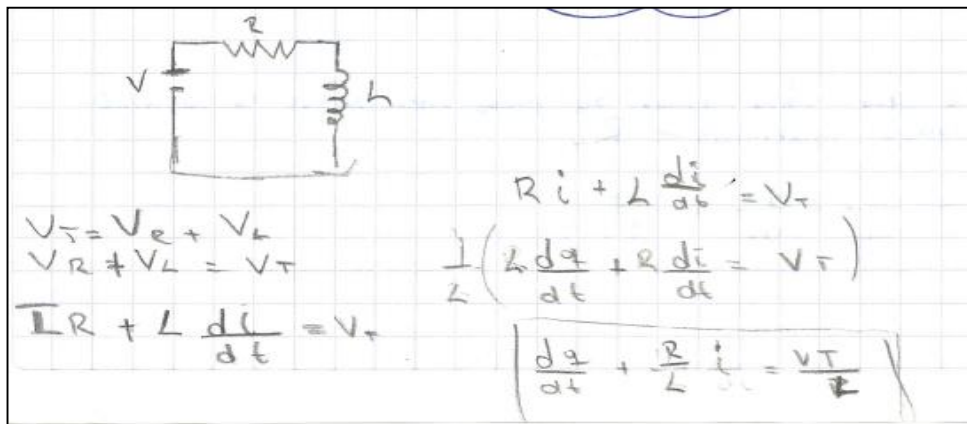 R
V
L
V_T = V_R + V_L
V_R + V_L = V_T
IR + L di/dt = V_T
Ri + L di/dt = V_T
1/L (L dq/dt + R di/dt = V_T)
dq/dt + R/L i = VT/L